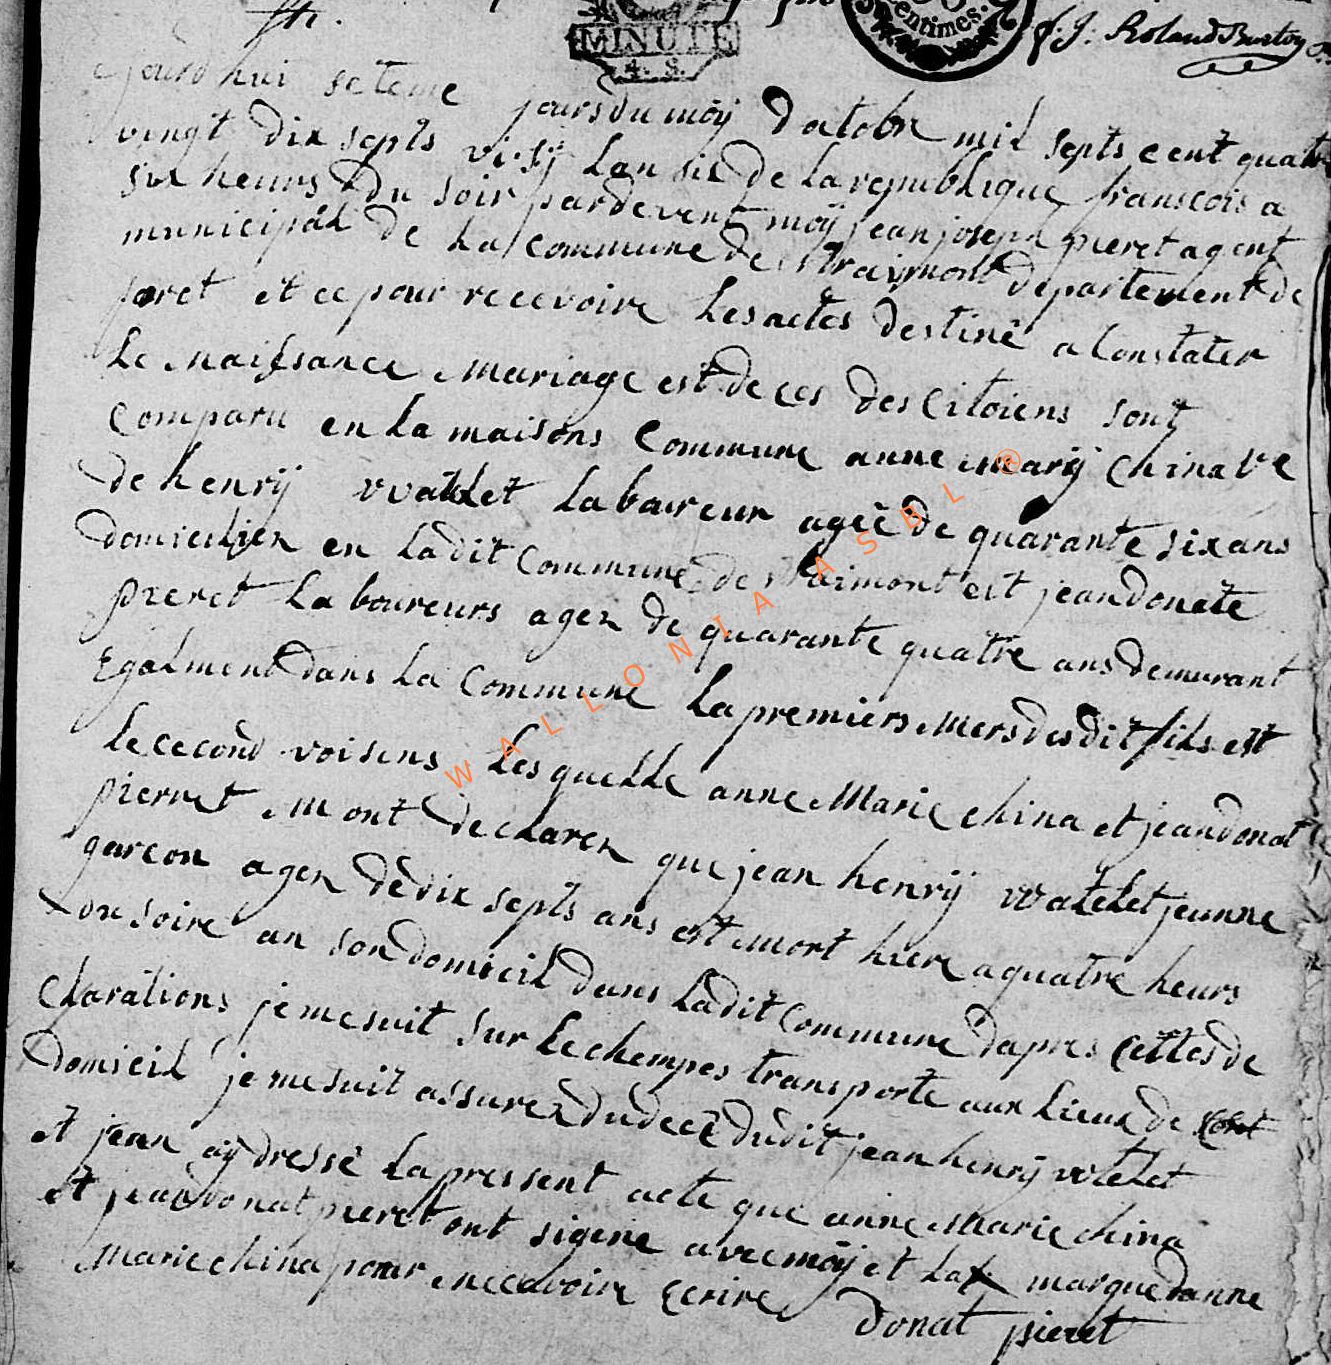 MINUTE
4. S.
centimes.
f. J. Roland Burton
jourdhui seteme jours du moÿ Dactobre mil septs cent quatre
vingt dix septs v: stÿ Lan six de La republique franscois a
six heurs du soir pardevent moÿ jean joseph pieret agent
municipal de La Commune de straimont Departement de
foret et ce pour recevoire Les actes destinê a Constater
Le Naissance Mariage est de ces des Citoiens sont
Comparu en La maisons Commune anne marÿ China ve
de henrÿ vvatelet Laboureur ageê de quarante six ans
domicilier en Ladit Commune de straimont est jean donate
pieret Laboureurs ager de quarante quatre ans demurant
Egalment dans La Commune La premiers Mers des dit fils est
Le cecond voisens Les quelle anne Marie China et jean donat
pierret Mont declarer que jean henrÿ vvatelet jeunne
garcon ager de dix septs ans est mort hier a quatre heurs
du soire an son domicil dans Ladit Commune dapres Cettes de
Clarations je me suit sur Le chempes transporte aux Lieux de
domicil je me suit assurer du decê dudit jean henrÿ vvtelet
et jean aÿ dressé La pressent acte que anne Marie China
et jean donat pieret ont signe avec moÿ et La x marque danne
Marie China pour ne cavoire Ecrire
Donat pieret
WALLONIA ASBL ®